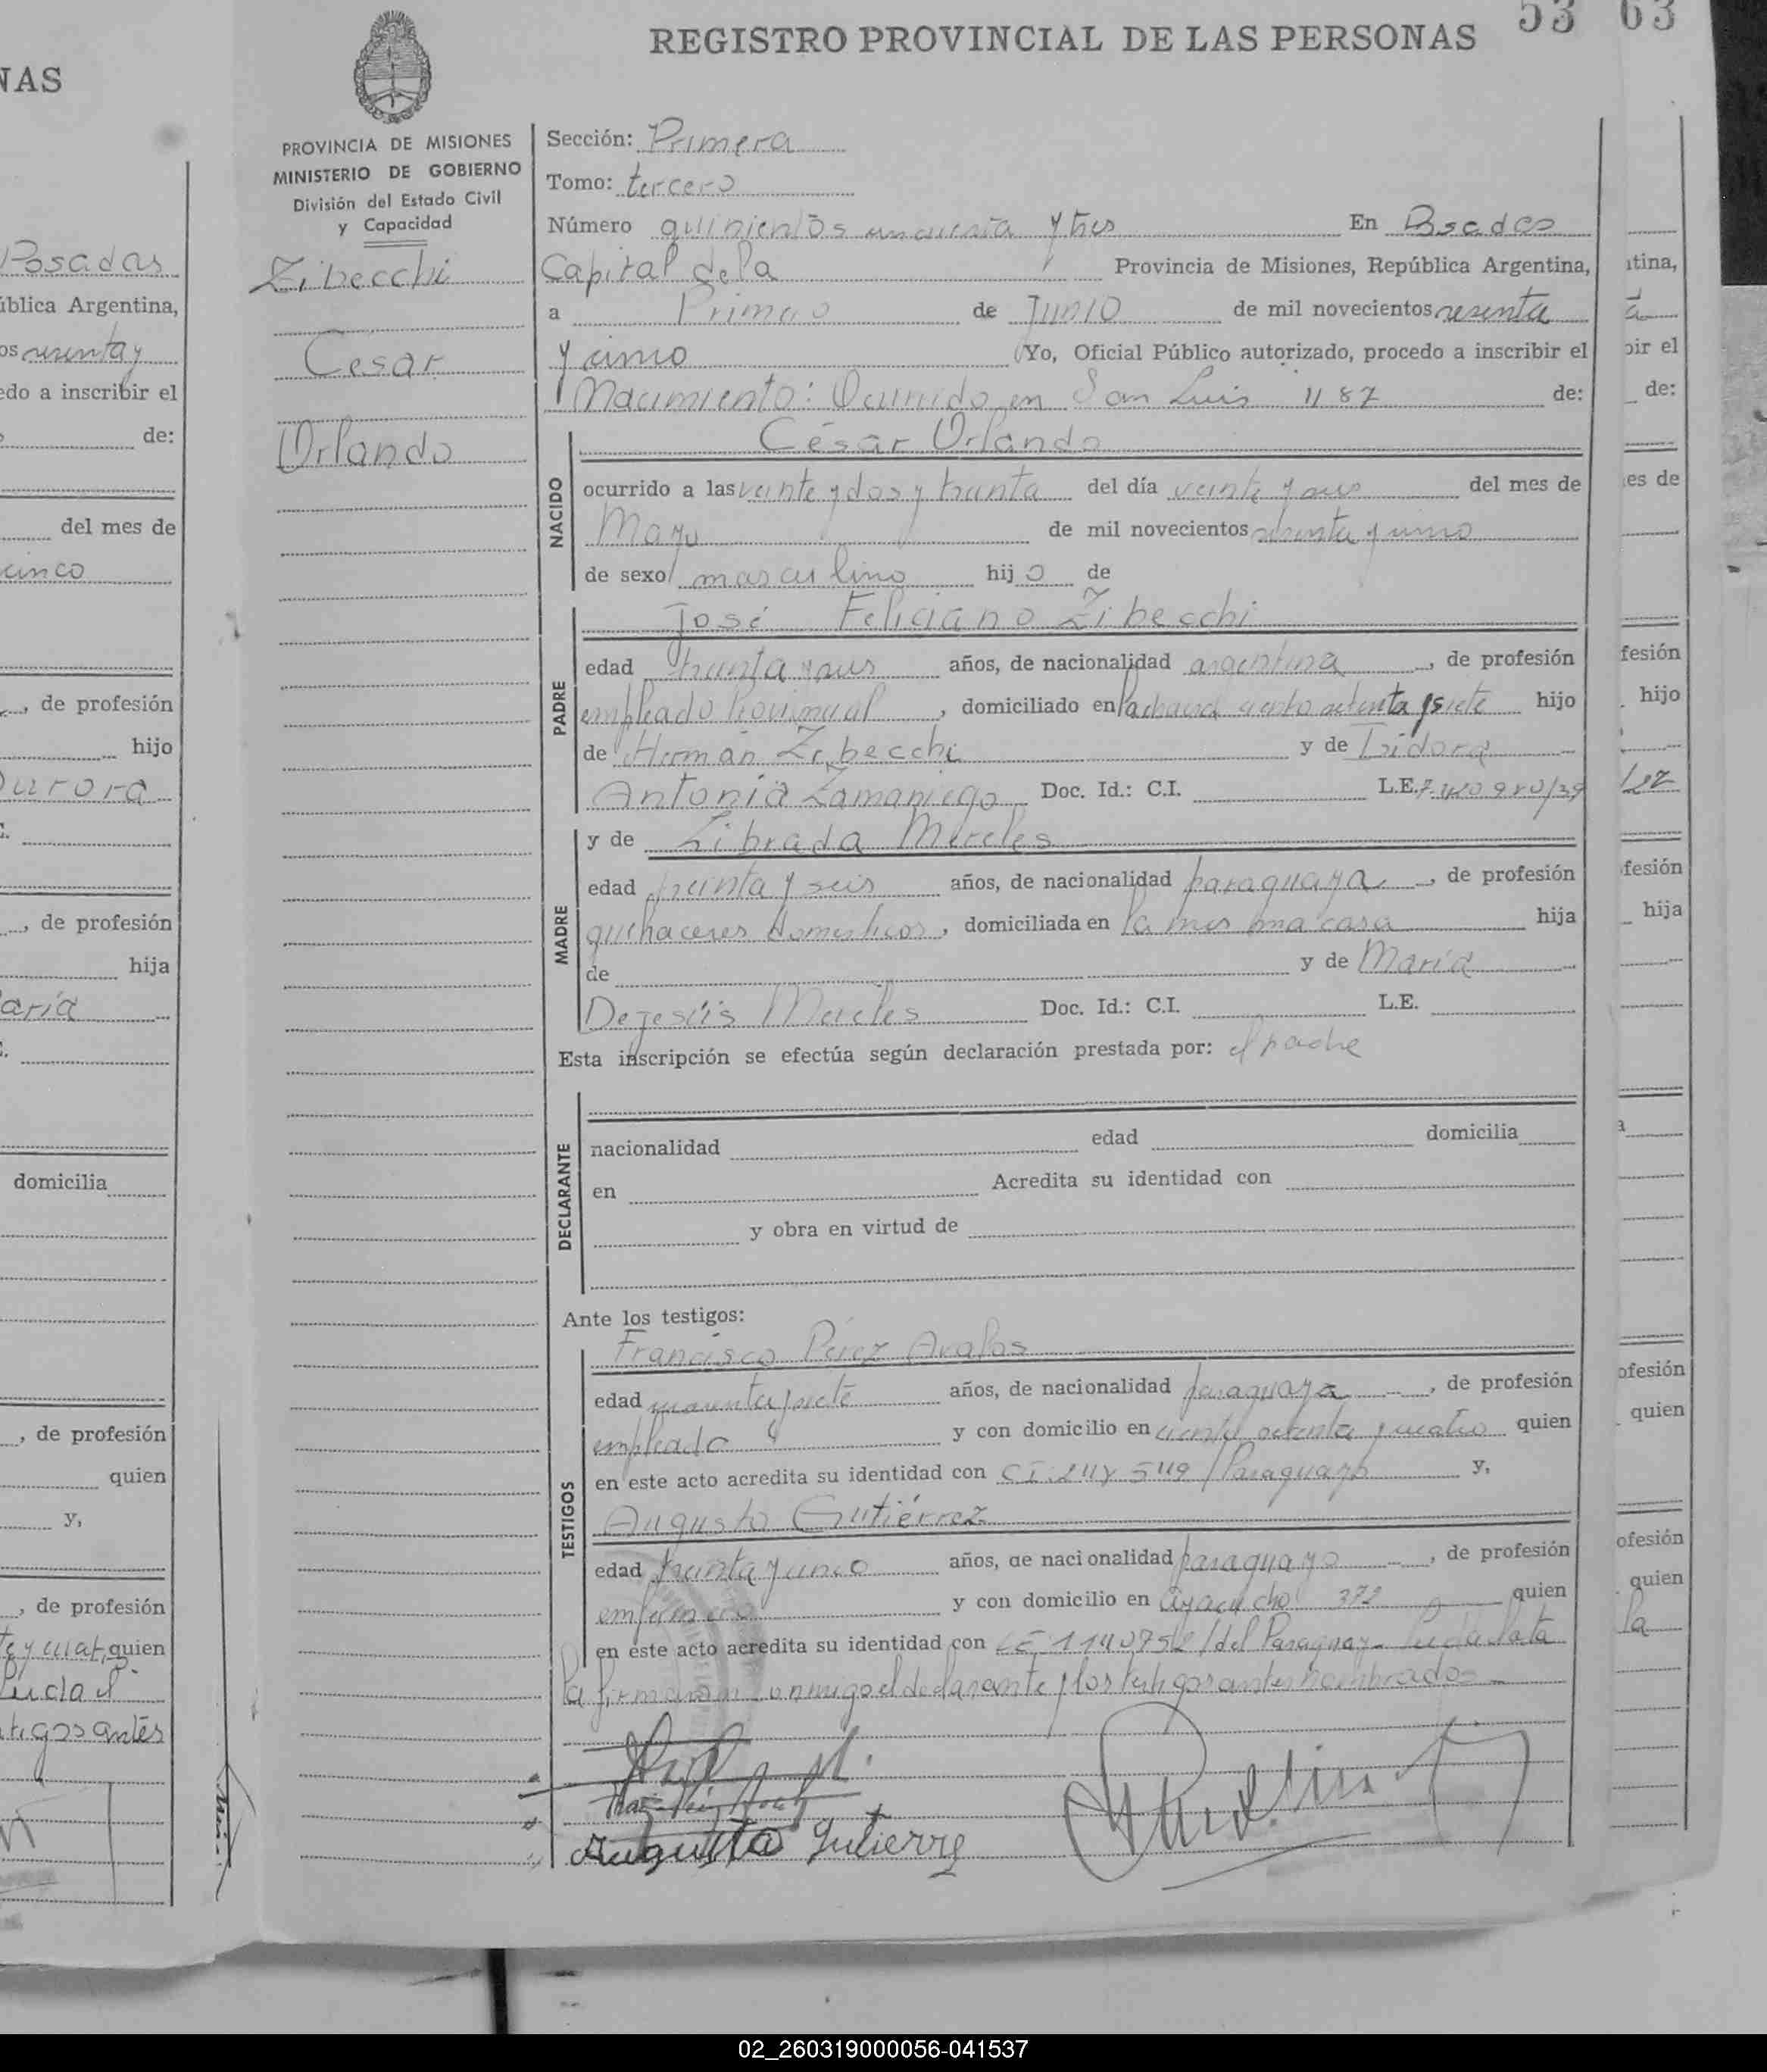 NAS
Posadas
ública Argentina,
os sesenta y
edo a inscribir el
de:
del mes de
cinco
, de profesión
hijo
Aurora
, de profesión
hija
aría
domicilia
, de profesión
quien
y,
, de profesión
quien
tigos antes
53 63
REGISTRO PROVINCIAL DE LAS PERSONAS
PROVINCIA DE MISIONES
MINISTERIO DE GOBIERNO
División del Estado Civil
y Capacidad
Zibecchi
Cesar
Orlando
Sección: Primera
Tomo: tercero
Número quinientos cincuenta y tres En Posadas
Capital de la Provincia de Misiones, República Argentina,
a Primero de Junio de mil novecientos sesenta
y cinco Yo, Oficial Público autorizado, procedo a inscribir el
Nacimiento: Ocurrido en San Luis 1187 de:
César Orlando
NACIDO
ocurrido a las veinte y dos y treinta del día veinte y seis del mes de
Mayo de mil novecientos sesenta y cinco
de sexo masculino hijo de
José Feliciano Zibecchi
PADRE
edad treinta y seis años, de nacionalidad argentina, de profesión
empleado Provincial, domiciliado en ciento setenta y siete hijo
de Hernán Zibecchi y de Isidora
Antonia Zamaniego Doc. Id.: C.I. L.E.
MADRE
y de Librada Mereles
edad treinta y seis años, de nacionalidad paraguaya, de profesión
quehaceres domesticos, domiciliada en la misma casa hija
de y de María
Dejesús Mereles Doc. Id.: C.I. L.E.
Esta inscripción se efectúa según declaración prestada por: el padre
DECLARANTE
nacionalidad edad domicilia
en Acredita su identidad con
y obra en virtud de
Ante los testigos:
TESTIGOS
Francisco Pérez Avalos
edad cuarenta y siete años, de nacionalidad paraguaya, de profesión
empleado y con domicilio en ochenta y cuatro quien
en este acto acredita su identidad con C.I. / Paraguayo y,
Augusto Gutiérrez
edad treinta y cinco años, de nacionalidad paraguayo, de profesión
enfermero y con domicilio en Ayacucho 372 quien
en este acto acredita su identidad con /del Paraguay. Leida la acta
la firmaron conmigo el declarante y los testigos antes nombrados
Augusto Gutierrez
tina,
bir el
de:
es de
fesión
hijo
fesión
hija
ofesión
quien
ofesión
quien
la
02_260319000056-041537